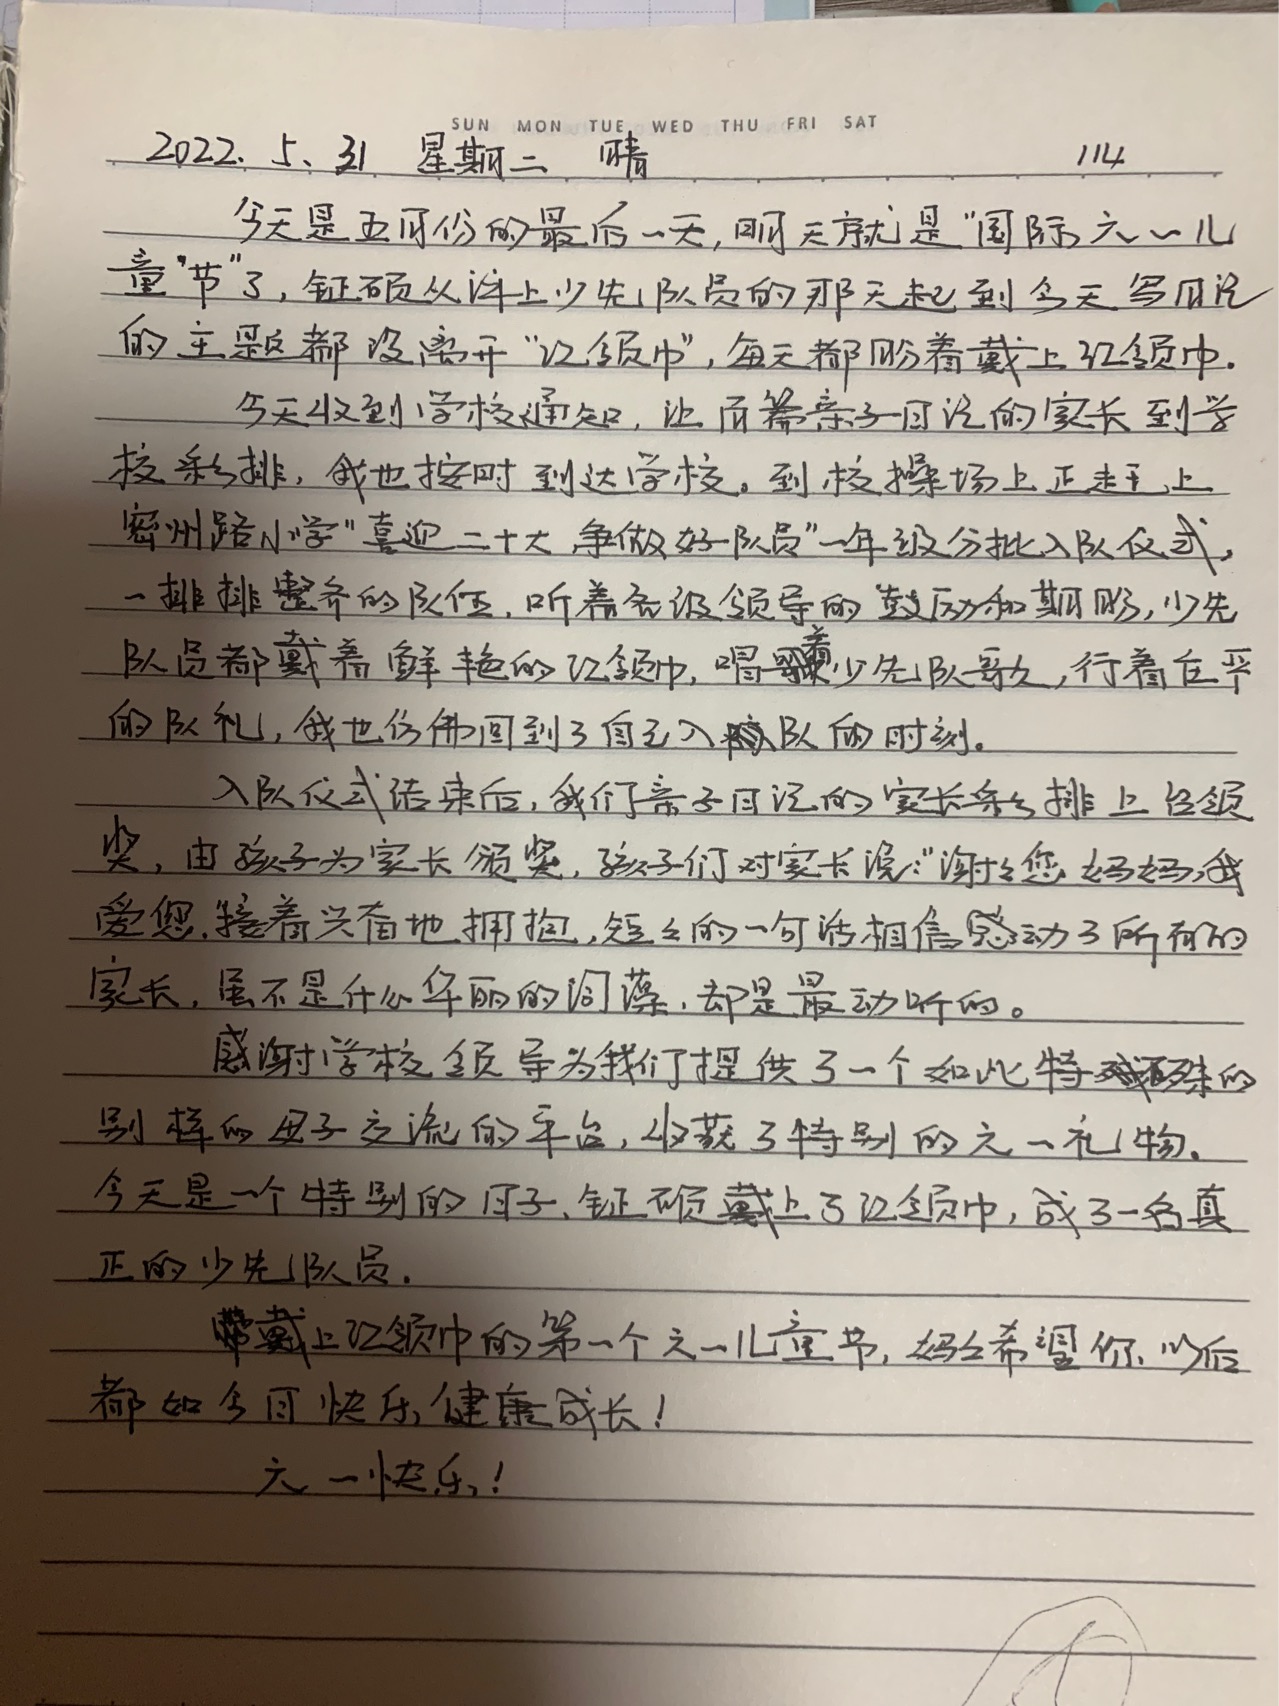 SUN MON TUE WED THU FRI SAT
2022.5.31 星期二 晴 114
今天是五月份的最后一天,明天就是"国际六一儿
童"节"了,钲硕从评上少先队员的那天起到今天写日记
的主题都没离开"红领巾",每天都盼着戴上红领巾.
今天收到学校通知,让有篇亲子日记的家长到学
校彩排,我也按时到达学校。到校操场上正走干上
密州路小学"喜迎二十大 争做好队员"一年级分批入队仪式,
一排排整齐的队伍,听着各级领导的鼓励和期盼,少先
队员都戴着鲜艳的红领巾,唱着少先队歌,行着庄严
的队礼,我也仿佛回到了自己入队的时刻。
入队仪式结束后,我们亲子日记的家长彩排上台领
奖,由孩子为家长颁奖,孩子们对家长说:"谢谢您妈妈,我
爱您.接着兴奋地拥抱,短短的一句话相信感动了所有的
家长,虽不是什么华丽的词藻,却是最动听的。
感谢学校领导为我们提供了一个如此特殊的
别样的母子交流的平台,收获了特别的六一礼物.
今天是一个特别的日子、钲硕戴上了红领巾,成了一名真
正的少先队员.
戴上红领巾的第一个六一儿童节,妈妈希望你以后
都如今日快乐,健康成长!
六一快乐!